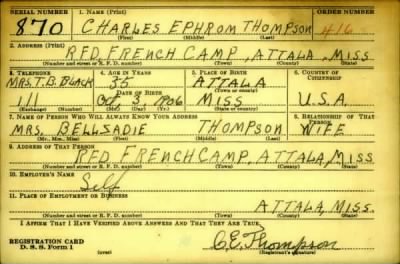 SERIAL NUMBER 1. NAME (Print) ORDER NUMBER
870 CHARLES EPHROM THOMPSON 416
(First) (Middle) (Last)
2. ADDRESS (Print)
RFD, FRENCH CAMP, ATTALA, MISS.
(Number and street or R. F. D. number) (Town) (County) (State)
3. TELEPHONE 4. AGE IN YEARS 5. PLACE OF BIRTH 6. COUNTRY OF CITIZENSHIP
MRS. T. B. BLACK 35 ATTALA
DATE OF BIRTH (Town or county)
111 Oct. 3 1906 MISS U.S.A.
(Exchange) (Number) (Mo.) (Day) (Yr.) (State or country)
7. NAME OF PERSON WHO WILL ALWAYS KNOW YOUR ADDRESS 8. RELATIONSHIP OF THAT PERSON
MRS. BELLSADIE THOMPSON WIFE
(Mr., Mrs., Miss) (First) (Middle) (Last)
9. ADDRESS OF THAT PERSON
RFD, FRENCH CAMP, ATTALA, MISS.
(Number and street or R. F. D. number) (Town) (County) (State)
10. EMPLOYER'S NAME
Self
11. PLACE OF EMPLOYMENT OR BUSINESS
ATTALA, MISS.
(Number and street or R. F. D. number) (Town) (County) (State)
I AFFIRM THAT I HAVE VERIFIED ABOVE ANSWERS AND THAT THEY ARE TRUE.
REGISTRATION CARD
D. S. S. Form 1 (over) C. E. Thompson
(Registrant's signature)